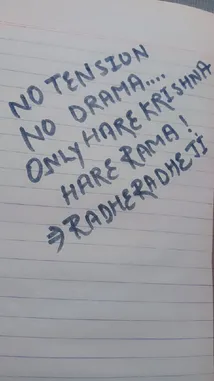 NO TENSION
NO DRAMA....
ONLY HARE KRISHNA
HARE RAMA!
⇒RADHERADHEJI